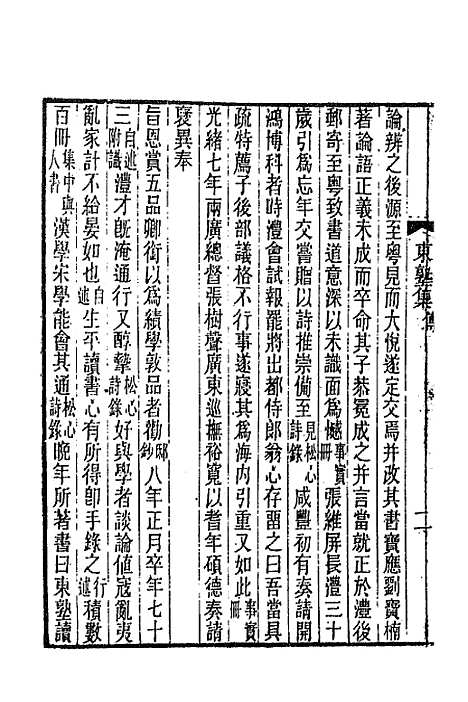 東塾集 傳
論辨之後源至粵見而大悅遂定交焉并改其書寶應劉寶楠
著論語正義未成而卒命其子恭冕成之并言當就正於澧後
郵寄至粵致書道意深以未識面爲憾事實冊張維屏長澧三十
歲引爲忘年交嘗貽以詩推崇備至見松心詩錄咸豐初有奏請開
鴻博科者時澧會試報罷將出都侍郎翁心存畱之曰吾當具
疏特薦子後部議格不行事遂寢其爲海內引重又如此事實冊
光緒七年兩廣總督張樹聲廣東巡撫裕寬以耆年碩德奏請
襃異奉
旨恩賞五品卿銜以爲績學敦品者勸邸鈔八年正月卒年七十
三自述附識澧才旣淹通行又醇摯松心詩錄好與學者談論値寇亂夷
亂家計不給晏如也自述生平讀書心有所得卽手錄之行述積數
百冊集中與人書漢學宋學能會其通松心詩錄晚年所著書曰東塾讀